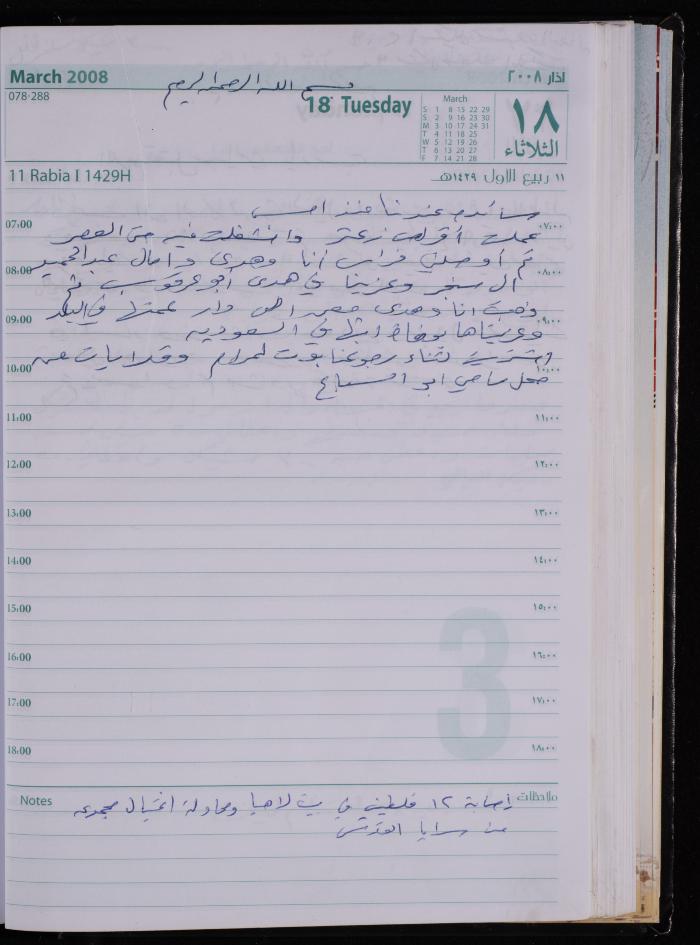 March 2008
اذار ٢٠٠٨
بسم الله الرحمن الرحيم
078-288
18 Tuesday
March
S 1 8 15 22 29
S 2 9 16 23 30
M 3 10 17 24 31
T 4 11 18 25
W 5 12 19 26
T 6 13 20 27
F 7 14 21 28
١٨
الثلاثاء
11 Rabia I 1429H
١١ ربيع الاول ١٤٢٩هـ
سائده عندنا منذ امس
07:00 ٠٧:٠٠
عملت أقراص زعتر وانشغلت فيه حتى العصر
ثم أوصلني فراس أنا وهدى وامال عبدالحميد
08:00 ٠٨:٠٠
ال سفر وعزينا في هدى أبو عرقوب ثم
ذهبت انا وهدى دار عمتها في البلد
09:00 ٠٩:٠٠
وعزيناها بوفاة ابنها في السعودية
اشتريت اثناء رجوعنا بوت لمرام من
10:00 ١٠:٠٠
محل سامي ابو السباع
11:00 ١١:٠٠
12:00 ١٢:٠٠
13:00 ١٣:٠٠
14:00 ١٤:٠٠
15:00 ١٥:٠٠
16:00 ١٦:٠٠
17:00 ١٧:٠٠
18:00 ١٨:٠٠
3
Notes
ملاحظات
إصابة ١٢ فلسطيني في بيت لاهيا ومحاولة اغتيال مجموعة
من سرايا القدس